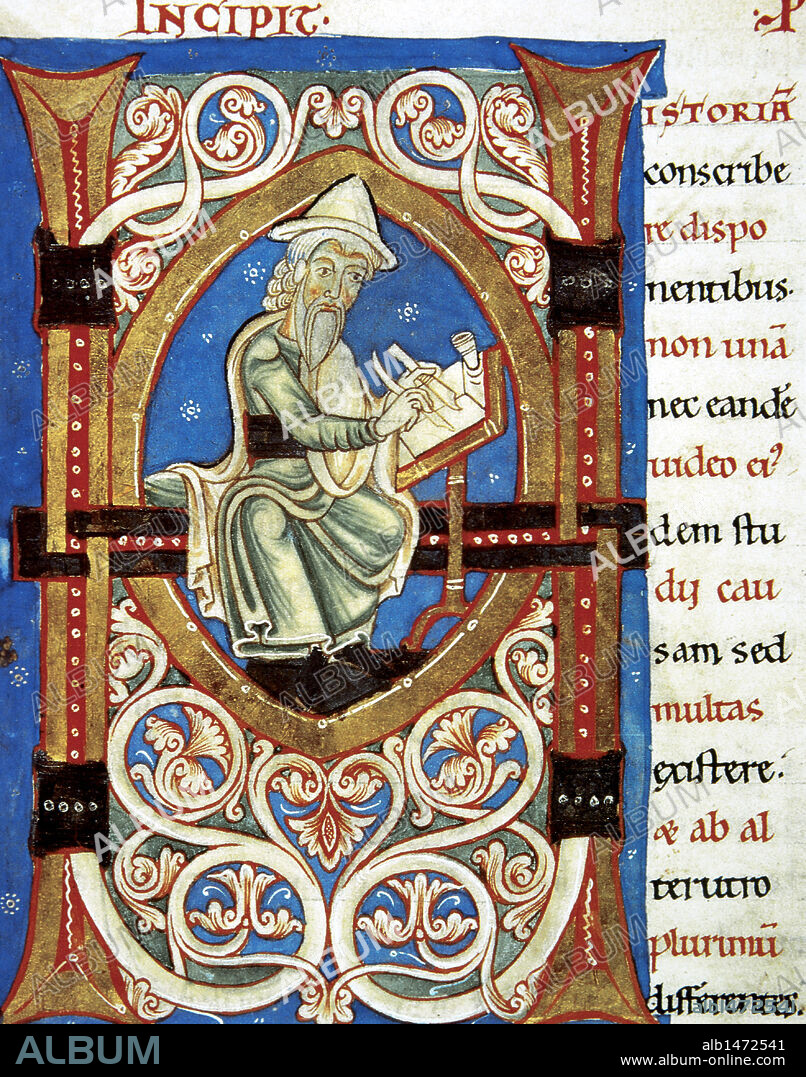 INCIPIT· ·P
ISTORIĀ
conscribe
re dispo
nentibus·
non unā
nec eandē
uideo ei⁹
dem stu
dij cau
sam sed
multas
existere·
æ ab al
terutro
plurimū
differentes.
ALBUM
alb1472541
www.album-online.com